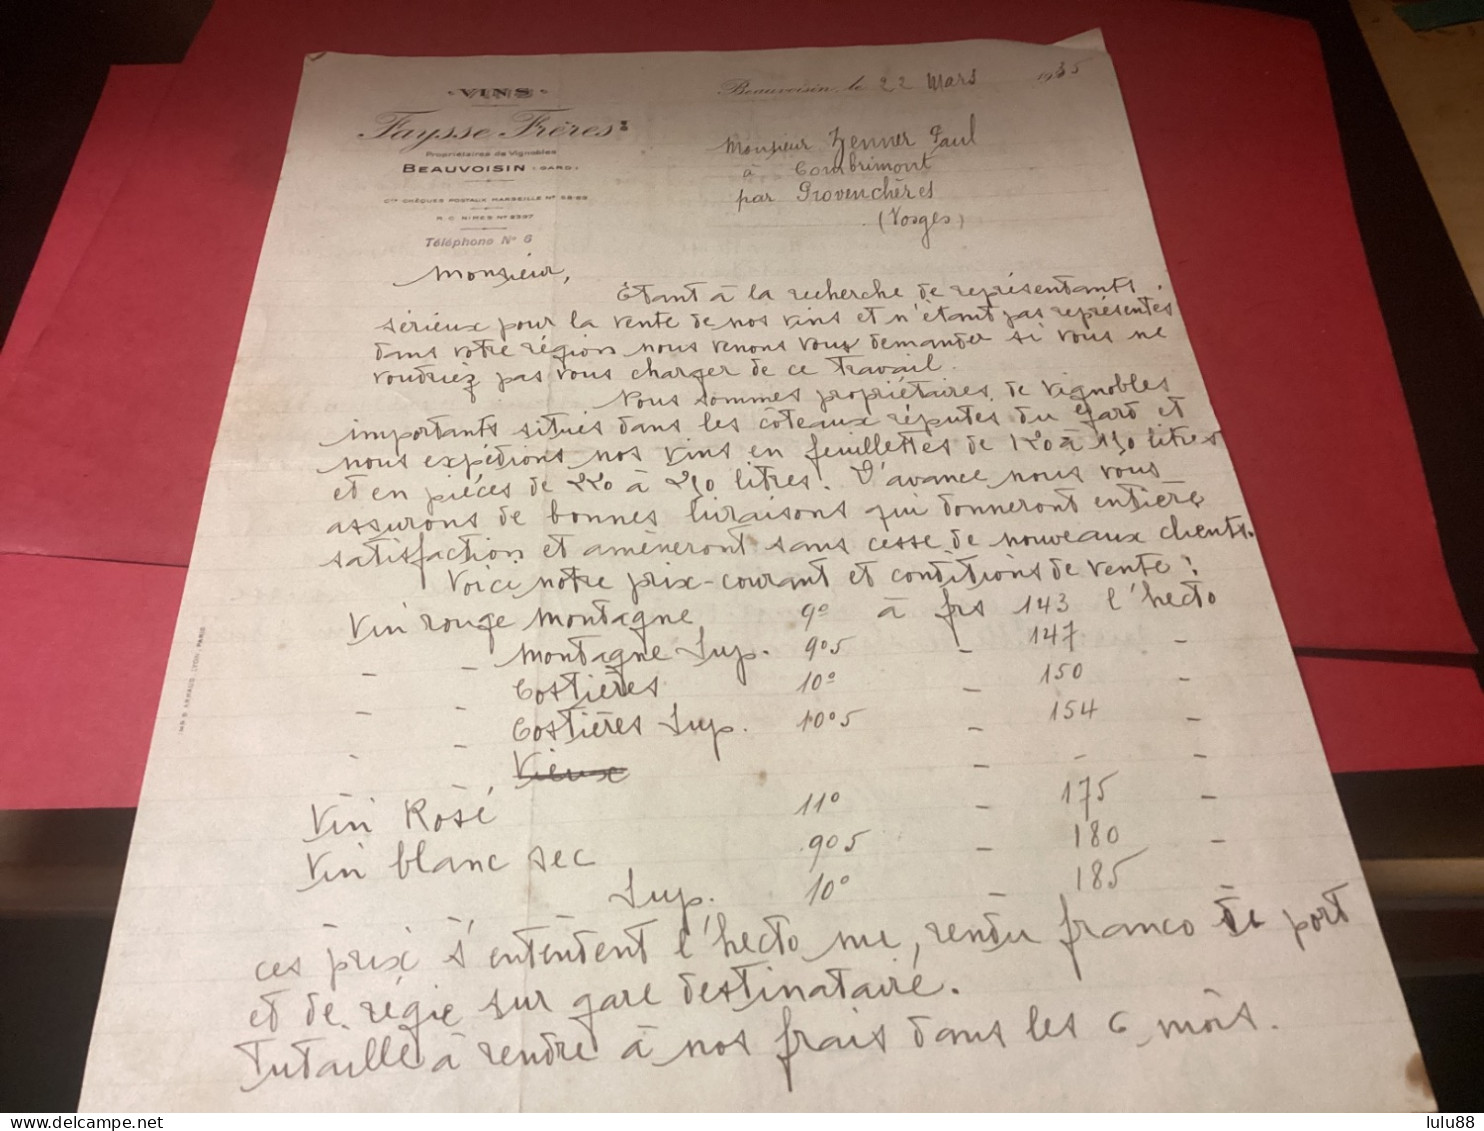 VINS
Faysse Frères
Propriétaires de Vignobles
BEAUVOISIN (GARD)
Cte CHÈQUES POSTAUX MARSEILLE N°
R.C. NIMES N°
Téléphone N° 6
Beauvoisin, le 22 Mars 1935
Monsieur Zenner Paul
à Combrimont
par Provenchères
(Vosges)
Monsieur,
Étant à la recherche de représentants
sérieux pour la vente de nos vins et n'étant pas représentés
dans votre région nous venons vous demander si vous ne
voudriez pas vous charger de ce travail.
Nous sommes propriétaires de vignobles
importants situés dans les côteaux réputés du Gard et
nous expédions nos vins en feuillettes de 120 à 130 litres
et en pièces de 220 à 230 litres. D'avance nous vous
assurons de bonnes livraisons qui donneront entière
satisfaction et amèneront sans cesse de nouveaux clients.
Voici notre prix-courant et conditions de vente :
Vin rouge Montagne 9° à frs 143 l'hecto
- - Montagne Sup. 9°5 - 147 -
- - Costières 10° - 150 -
- - Costières Sup. 10°5 - 154 -
- - Vieux - - -
Vin Rosé 11° - 175 -
Vin blanc sec 9°5 - 180 -
Sup. 10° - 185
ces prix s'entendent l'hecto nu, rendu franco de port
et de régie sur gare destinataire.
Futaille à rendre à nos frais dans les 6 mois.
IMP. B. ARNAUD, LYON-PARIS
lulu88